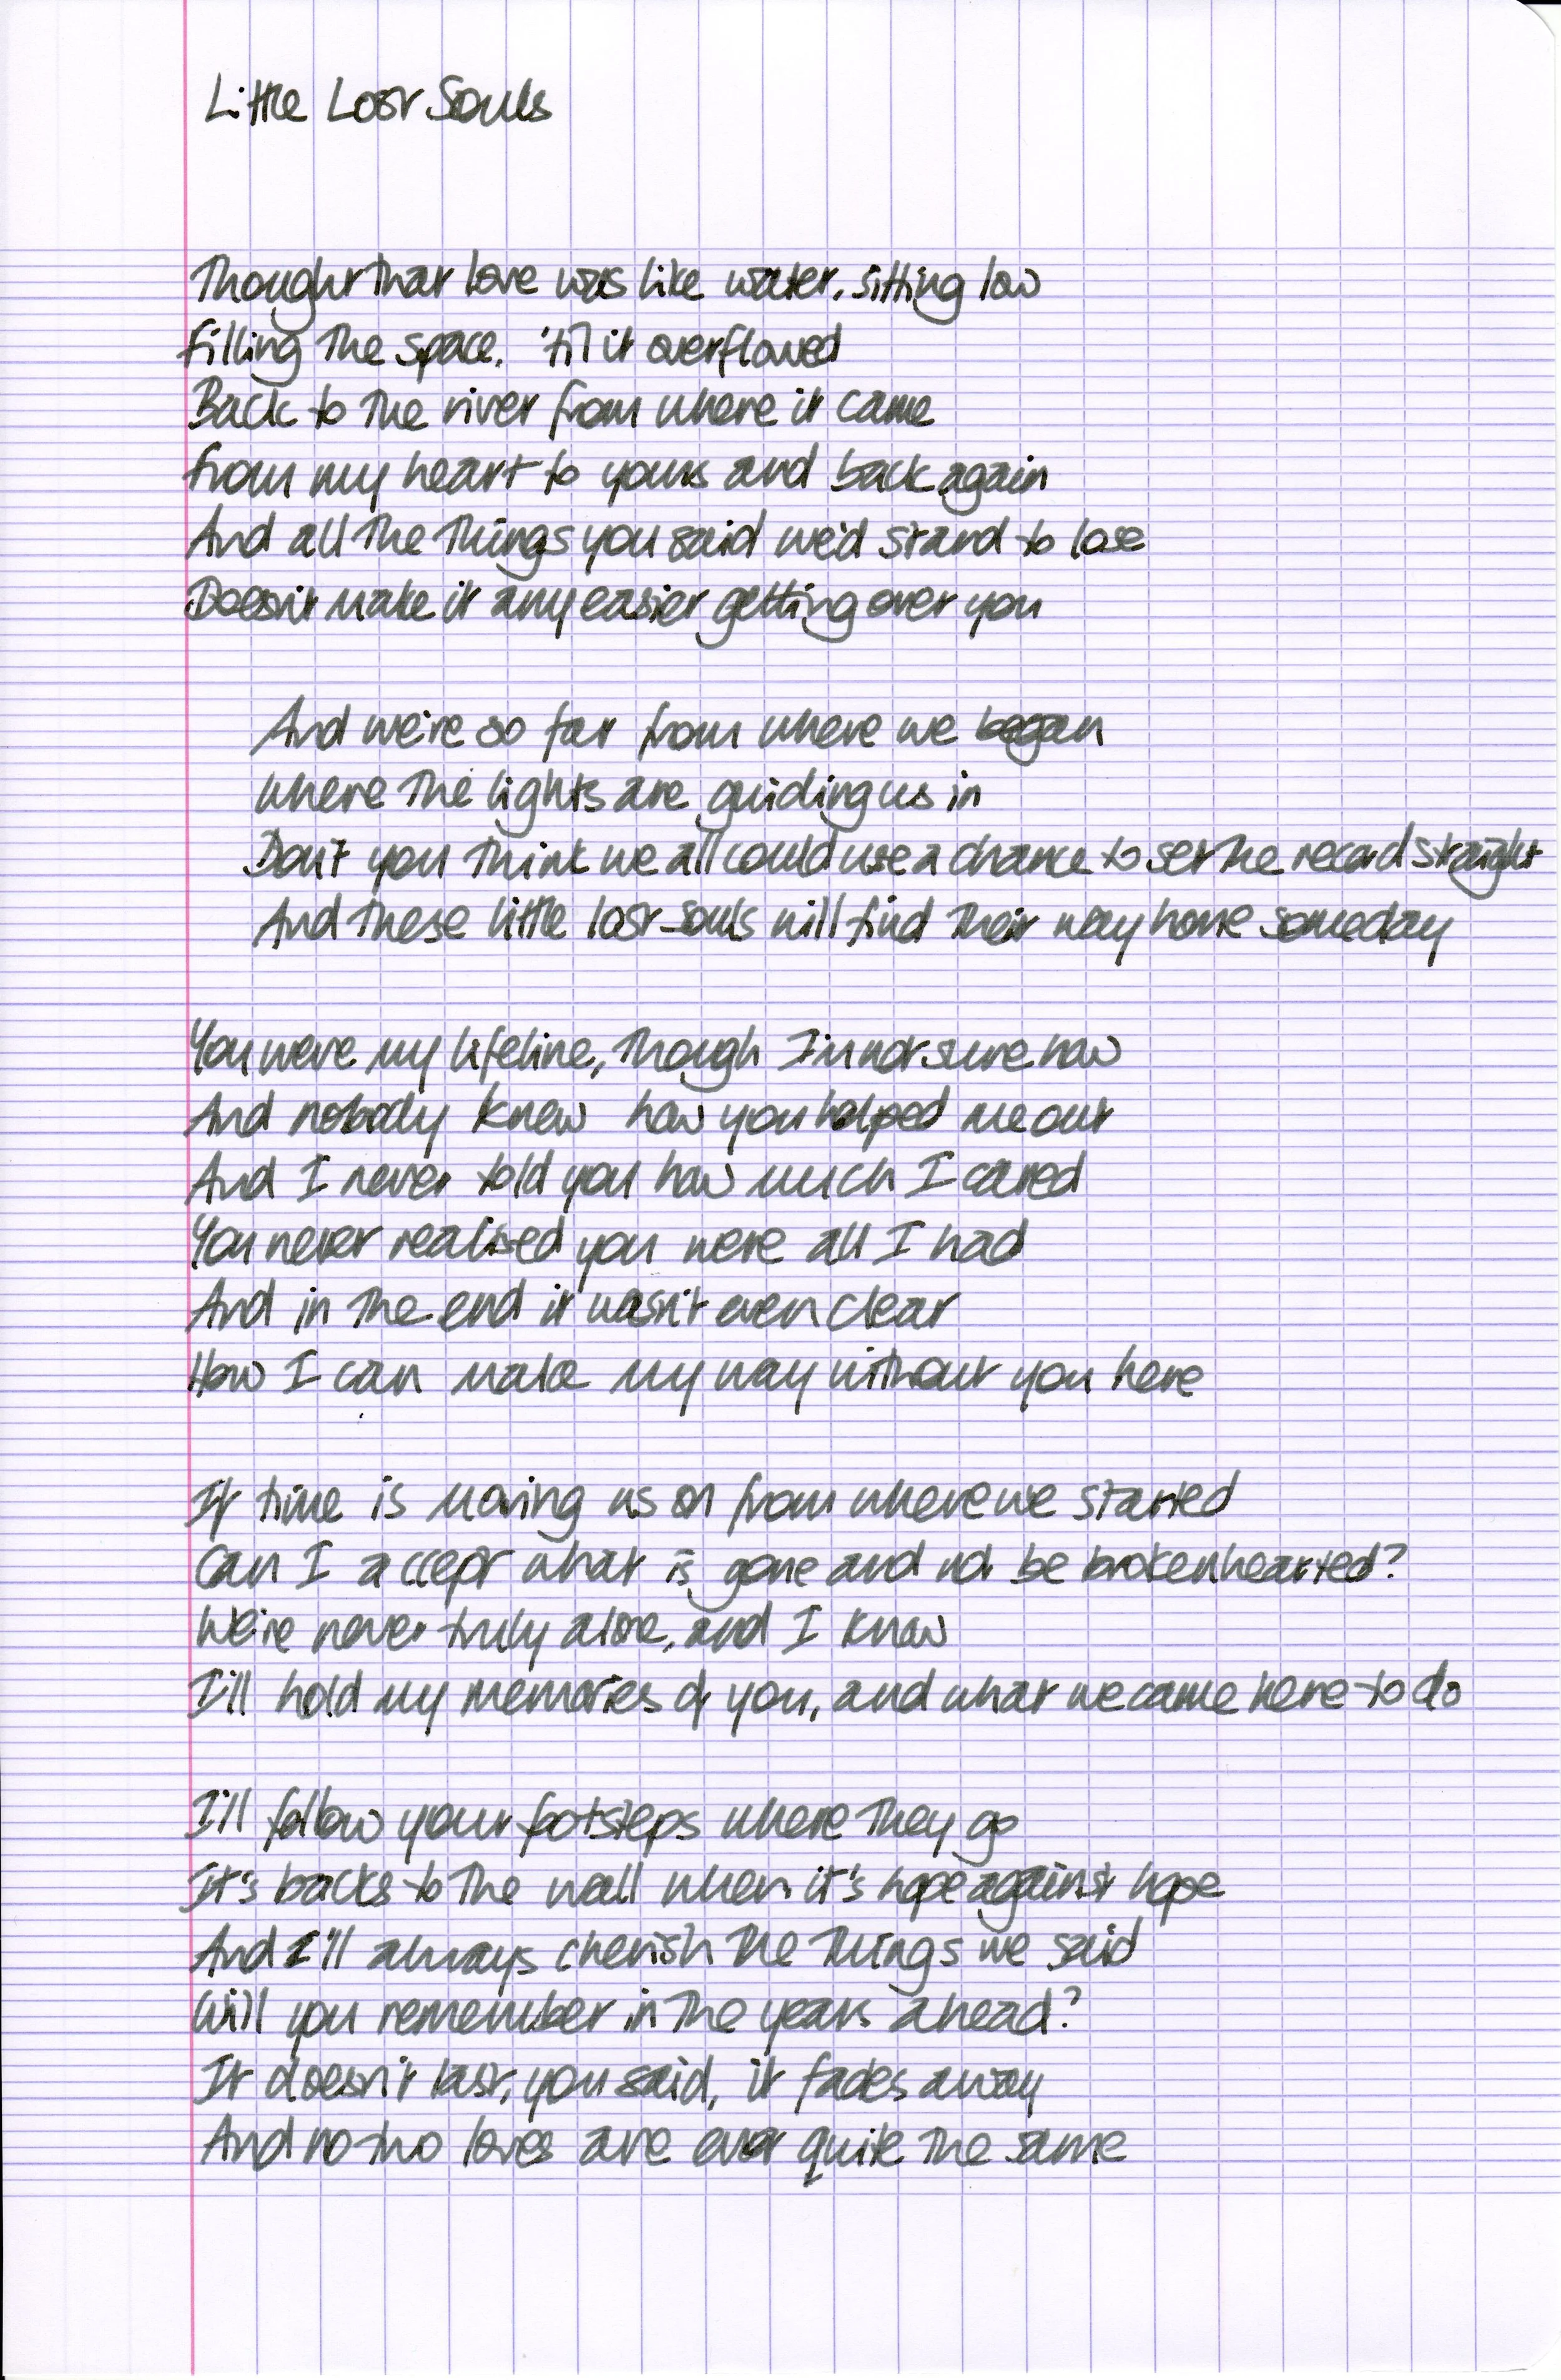 Little Lost Souls
Thought that love was like water, sitting low
Filling the space, 'til it overflowed
Back to the river from where it came
From my heart to yours and back again
And all the things you said we'd stand to lose
Doesn't make it any easier getting over you
And we're so far from where we began
Where the lights are guiding us in
Don't you think we all could use a chance to set the record straight
And these little lost souls will find their way home someday
You were my lifeline, though I'm not sure how
And nobody knew how you helped me out
And I never told you how much I cared
You never realised you were all I had
And in the end it wasn't even clear
How I can make my way without you here
If time is moving us on from where we started
Can I accept what is gone and not be brokenhearted?
We're never truly alone, and I know
I'll hold my memories of you, and what we came here to do
I'll follow your footsteps where they go
It's backs to the wall when it's hope against hope
And I'll always cherish the things we said
Will you remember in the years ahead?
It doesn't last, you said, it fades away
And no two loves are ever quite the same